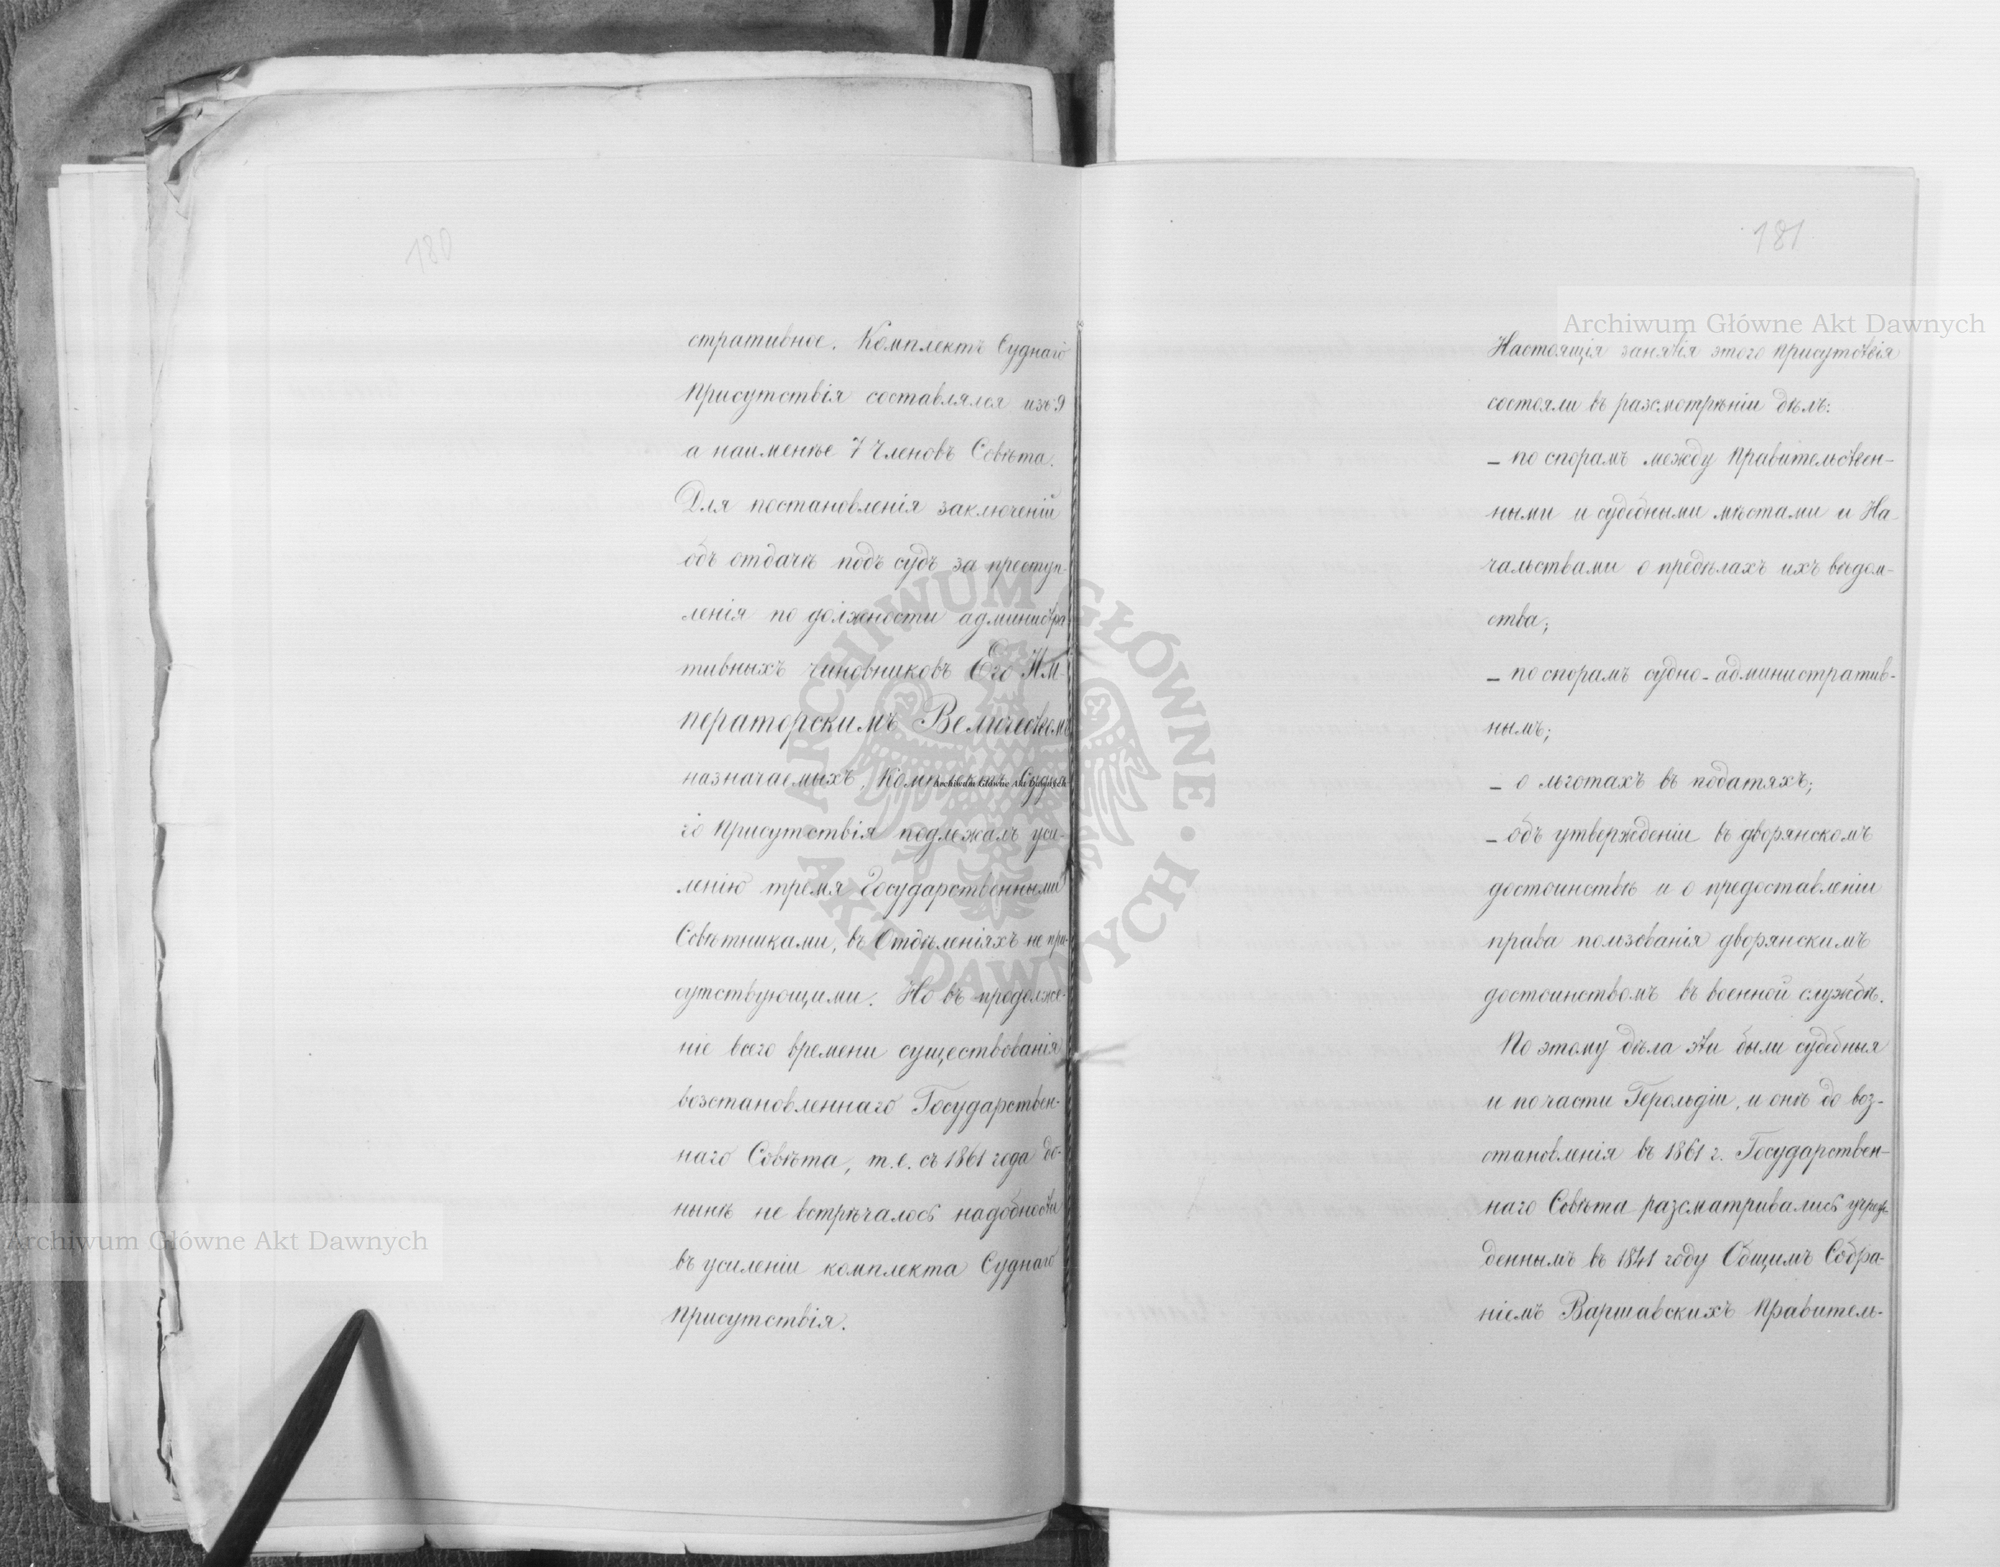 180
стративное. Комплектъ Суднаго
Присутствія составлялся изъ 9
а наименѣе 7 Членовъ Совѣта.
Для постановленія заключеній
объ отдачѣ подъ судъ за преступ-
ленія по должности администра
тивныхъ чиновниковъ Его Им-
ператорскимъ Величествомъ
назначаемыхъ, Комплектъ Судна
го Присутствія подлежалъ уси-
ленію тремя Государственными
Совѣтниками, въ Отдѣленіяхъ не при-
сутствующими. Но въ продолже-
ніе всего времени существованія
возстановленнаго Государствен-
наго Совѣта, т.е. съ 1861 года до-
нынѣ не встрѣчалось надобности
въ усиленіи комплекта Суднаго
Присутствія.
181
Настоящія занятія этого Присутствія
состояли въ разсмотрѣніи дѣлъ:
– по спорамъ между Правительствен-
ными и судебными мѣстами и На
чальствами о предѣлахъ ихъ вѣдом-
ства;
– по спорамъ судно-административ-
нымъ;
– о льготахъ въ податяхъ;
– объ утвержденіи въ дворянскомъ
достоинствѣ и о предоставленіи
права пользованія дворянскимъ
достоинствомъ въ военной службѣ.
По этому дѣла эти были судебныя
и по части Герольдіи, и онѣ до воз-
становленія въ 1861 г. Государствен-
наго Совѣта разсматривались учреж-
деннымъ въ 1841 году Общимъ Собра-
ніемъ Варшавскихъ Правитель-
Archiwum Główne Akt Dawnych
Archiwum Główne Akt Dawnych
Archiwum Główne Akt Dawnych
ARCHIWUM GŁÓWNE AKT DAWNYCH